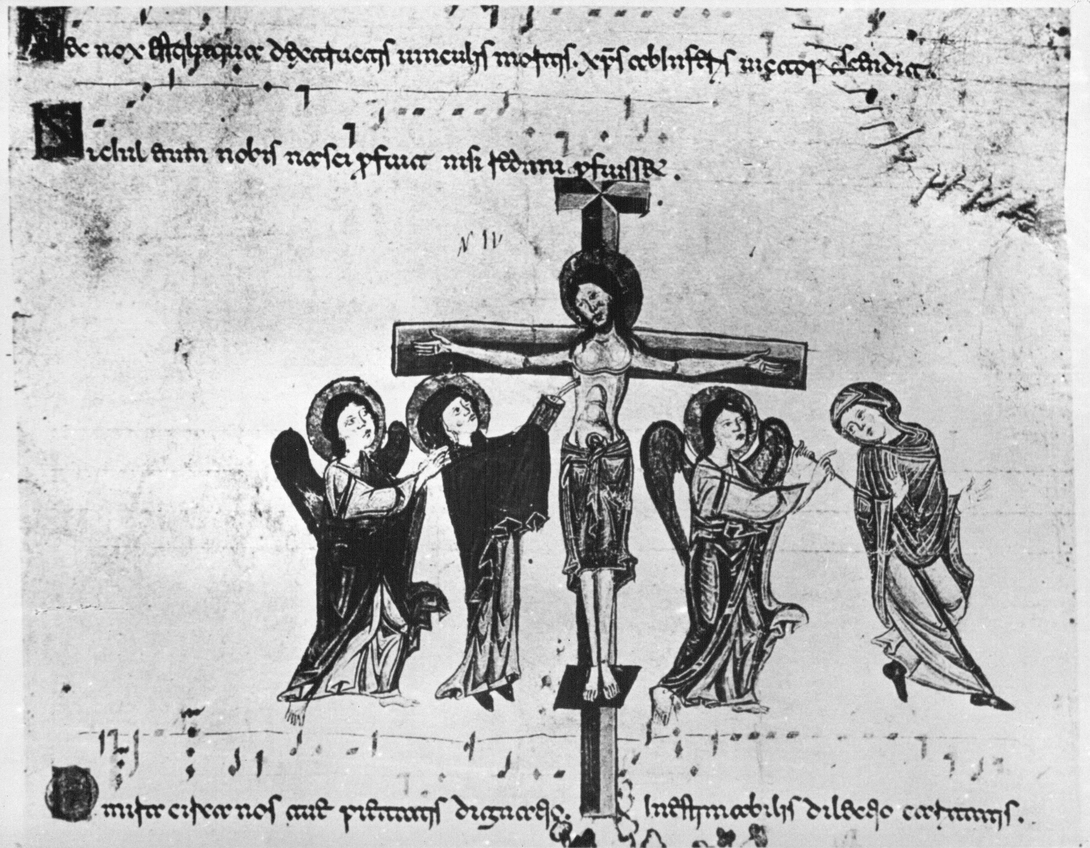 Hec nox est in qua destructis uinculis mortis. xp̄s ab inferis uictor ascendit.
Nichil enim nobis nasci ꝓfuit nisi redimi ꝓfuisset.
N IV
O mira circa nos tue pietatis dignatio. Inestimabilis dilectio caritatis.